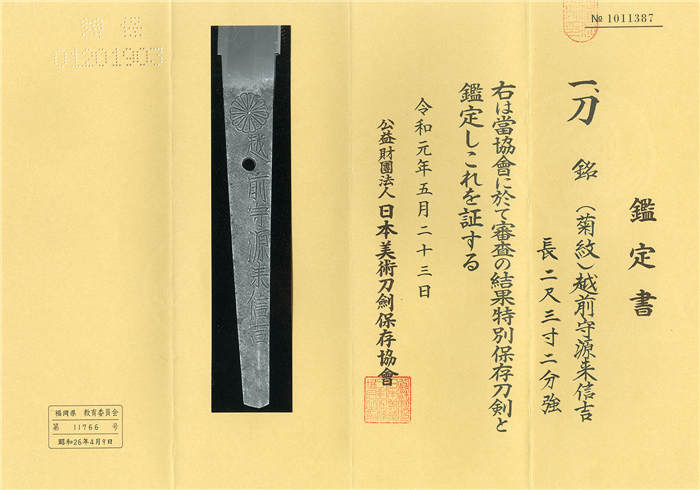 № 1011387
鑑定書
一、刀 銘 (菊紋)越前守源来信吉
長 二尺三寸二分強
右は當協會に於て審査の結果特別保存刀剣と
鑑定しこれを証する
令和元年五月二十三日
公益財團法人 日本美術刀劍保存協會
越前守源来信吉
01201903
福岡県 教育委員会
第 11766 号
昭和26年4月9日